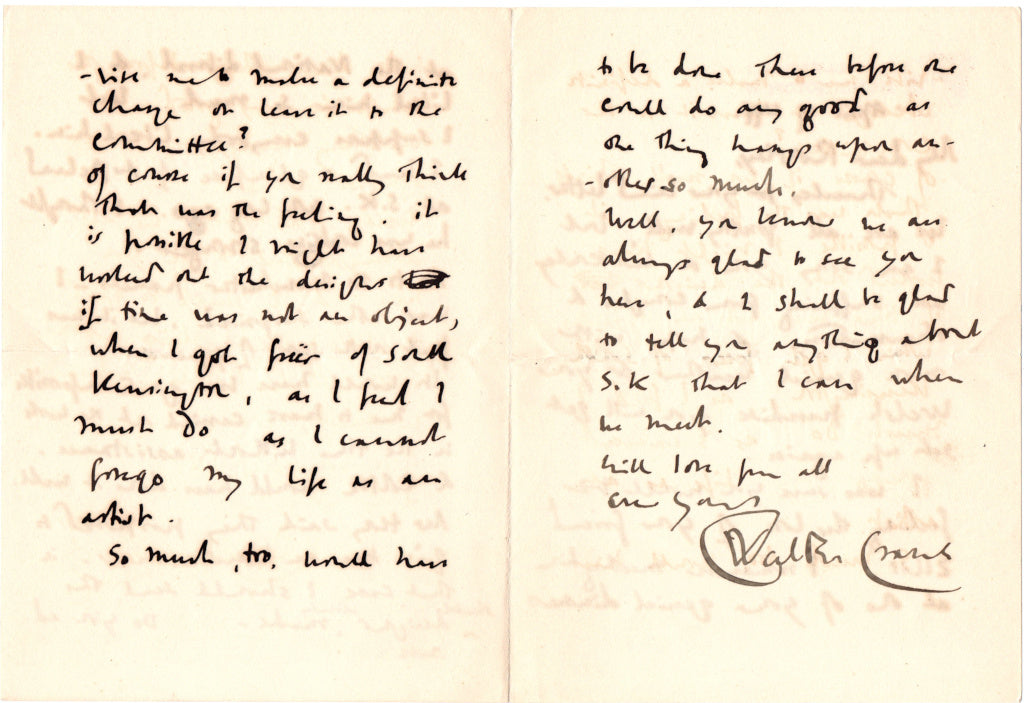 -vise me to make a definite
charge or leave it to the
committee?
Of course if you really think
that was the feeling, it
is possible I might have
worked out the designs
if time was not an object,
when I got free of South
Kensington, as I feel I
must do as I cannot
forego my life as an
artist.
So much, too, would have
to be done there before one
could do any good as
one thing hangs upon an-
-other so much.
Well, you know we are
always glad to see you
here, & I shall be glad
to tell you anything about
S.K that I can when
we meet.
With love from all
ever yours
Walter Crane